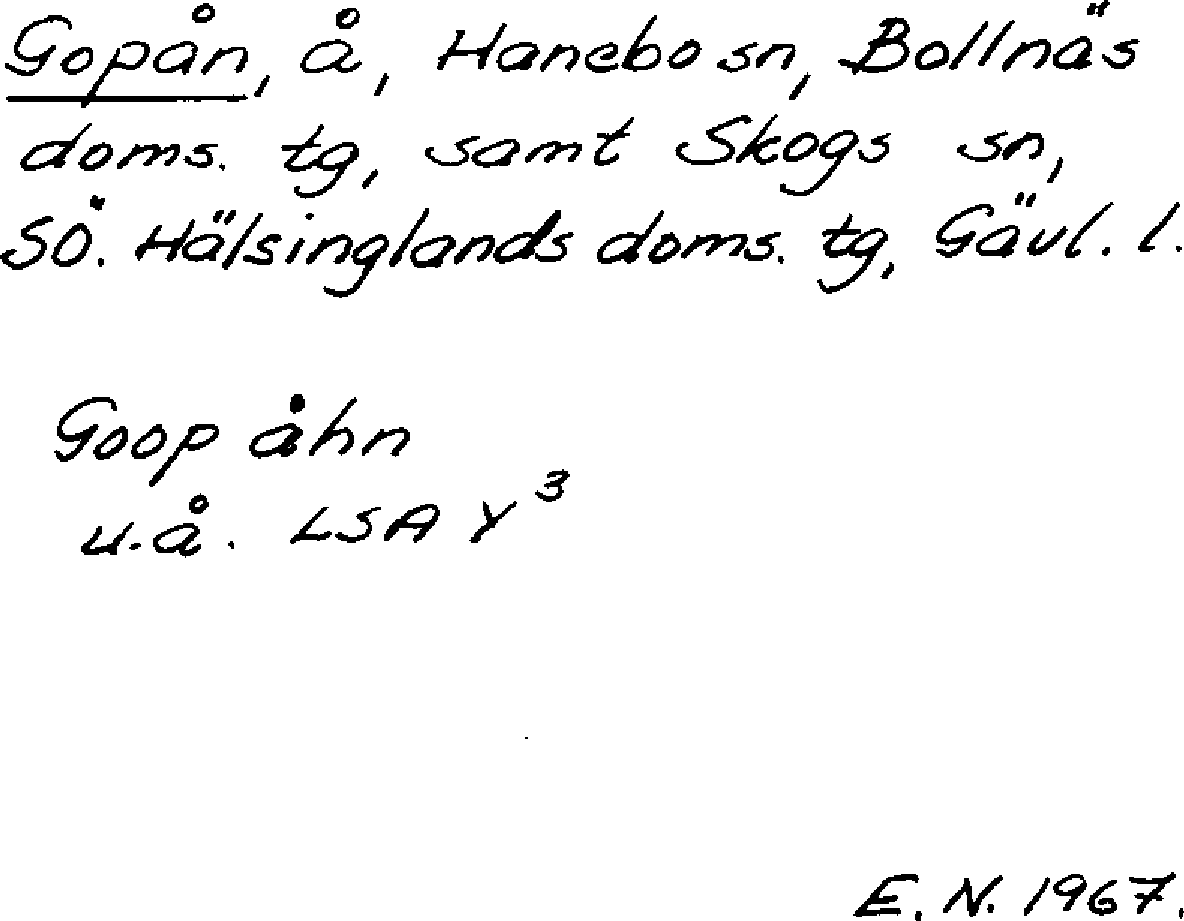 Gopån, å, Hanebo sn, Bollnäs
doms. tg, samt Skogs sn,
SÖ. Hälsinglands doms. tg, Gävl. l.
Goop åhn
u.å. LSA Y³
E. N. 1967.